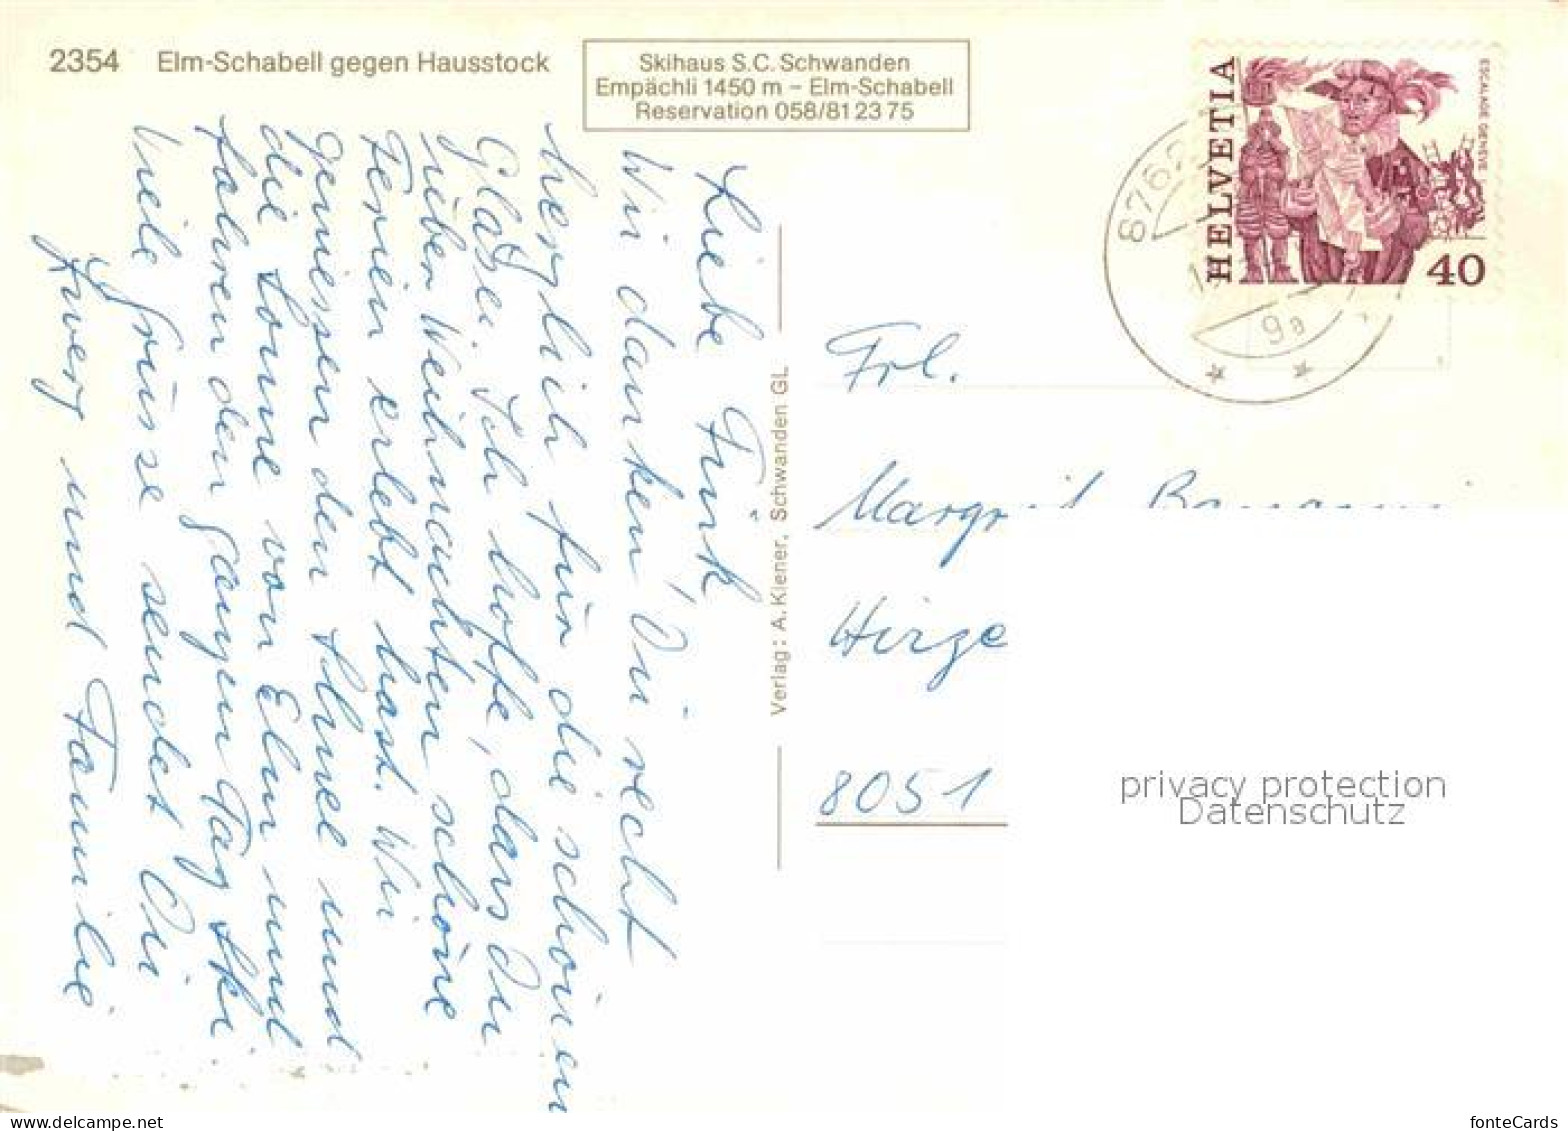 2354 Elm-Schabell gegen Hausstock
Skihaus S.C. Schwanden
Empächli 1450 m – Elm-Schabell
Reservation 058/81 23 75
HELVETIA
ESCALADE GENÈVE
40
8762
9a
Liebe
Wir danken Dir recht
herzlich für die schönen
Gläser. Ich hoffe, dass Du
über Weihnachten schöne
Ferien erlebt hast. Wir
geniessen den Schnee und
die Sonne von Elm und
fahren den ganzen Tag Ski
Viele Grüsse sendet Dir
und Familie
Verlag: A. Kiener, Schwanden GL
Frl.
Margrit
Hirze
8051
privacy protection
Datenschutz
www.delcampe.net
fonteCards